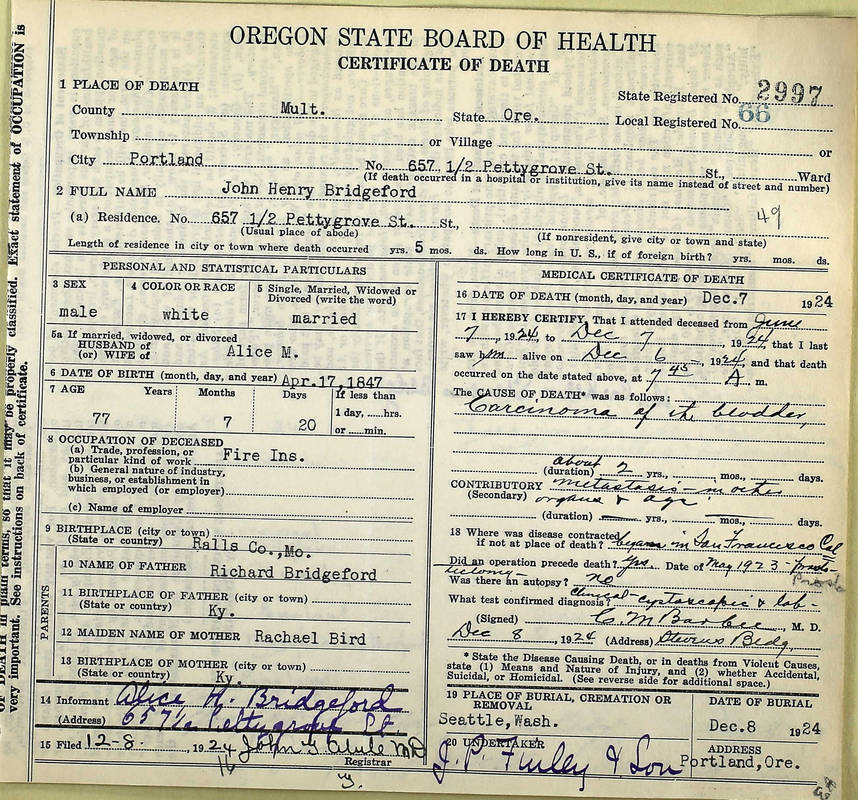 OREGON STATE BOARD OF HEALTH
CERTIFICATE OF DEATH
1 PLACE OF DEATH
State Registered No. 2997
County Mult. State Ore. Local Registered No. 66
Township or Village or
City Portland No. 657 1/2 Pettygrove St. St., Ward
(If death occurred in a hospital or institution, give its name instead of street and number)
2 FULL NAME John Henry Bridgeford
49
(a) Residence. No. 657 1/2 Pettygrove St. St.,
(Usual place of abode) (If nonresident, give city or town and state)
Length of residence in city or town where death occurred yrs. 5 mos. ds. How long in U. S., if of foreign birth? yrs. mos. ds.
PERSONAL AND STATISTICAL PARTICULARS
3 SEX 4 COLOR OR RACE 5 Single, Married, Widowed or
Divorced (write the word)
male white married
5a If married, widowed, or divorced
HUSBAND of
(or) WIFE of Alice M.
6 DATE OF BIRTH (month, day, and year) Apr.17,1847
7 AGE Years Months Days If less than
1 day, hrs.
77 7 20 or min.
8 OCCUPATION OF DECEASED
(a) Trade, profession, or
particular kind of work Fire Ins.
(b) General nature of industry,
business, or establishment in
which employed (or employer)
(c) Name of employer
9 BIRTHPLACE (city or town)
(State or country) Ralls Co.,Mo.
PARENTS
10 NAME OF FATHER Richard Bridgeford
11 BIRTHPLACE OF FATHER (city or town)
(State or country) Ky.
12 MAIDEN NAME OF MOTHER Rachael Bird
13 BIRTHPLACE OF MOTHER (city or town)
(State or country) Ky.
14 Informant Alice M. Bridgeford
(Address) 657 1/2 Pettygrove St
15 Filed 12-8-, 1924 John G Abele MD
Registrar
MEDICAL CERTIFICATE OF DEATH
16 DATE OF DEATH (month, day, and year) Dec.7 1924
17 I HEREBY CERTIFY, That I attended deceased from June
7, 1924, to Dec 7, 1924, that I last
saw him alive on Dec 6, 1924, and that death
occurred on the date stated above, at 7 45 A m.
The CAUSE OF DEATH* was as follows:
Carcinoma of the bladder,
about 2
(duration) yrs., mos., days.
CONTRIBUTORY metastasis in other
(Secondary) organs & age
(duration) yrs., mos., days.
18 Where was disease contracted
if not at place of death? began in San Francisco Cal
Did an operation precede death? Yes. Date of May 1923 - prosta-
tectomy
Was there an autopsy? no
What test confirmed diagnosis? Clinical - cystoscopic & lab-
(Signed) C. M Barbee, M. D.
Dec 8, 1924 (Address) Stevens Bldg.
* State the Disease Causing Death, or in deaths from Violent Causes,
state (1) Means and Nature of Injury, and (2) whether Accidental,
Suicidal, or Homicidal. (See reverse side for additional space.)
19 PLACE OF BURIAL, CREMATION OR
REMOVAL DATE OF BURIAL
Seattle,Wash. Dec.8 1924
20 UNDERTAKER ADDRESS
J. P. Finley & Son Portland,Ore.
OF DEATH in plain terms, so that it may be properly classified. Exact statement of OCCUPATION is
very important. See instructions on back of certificate.